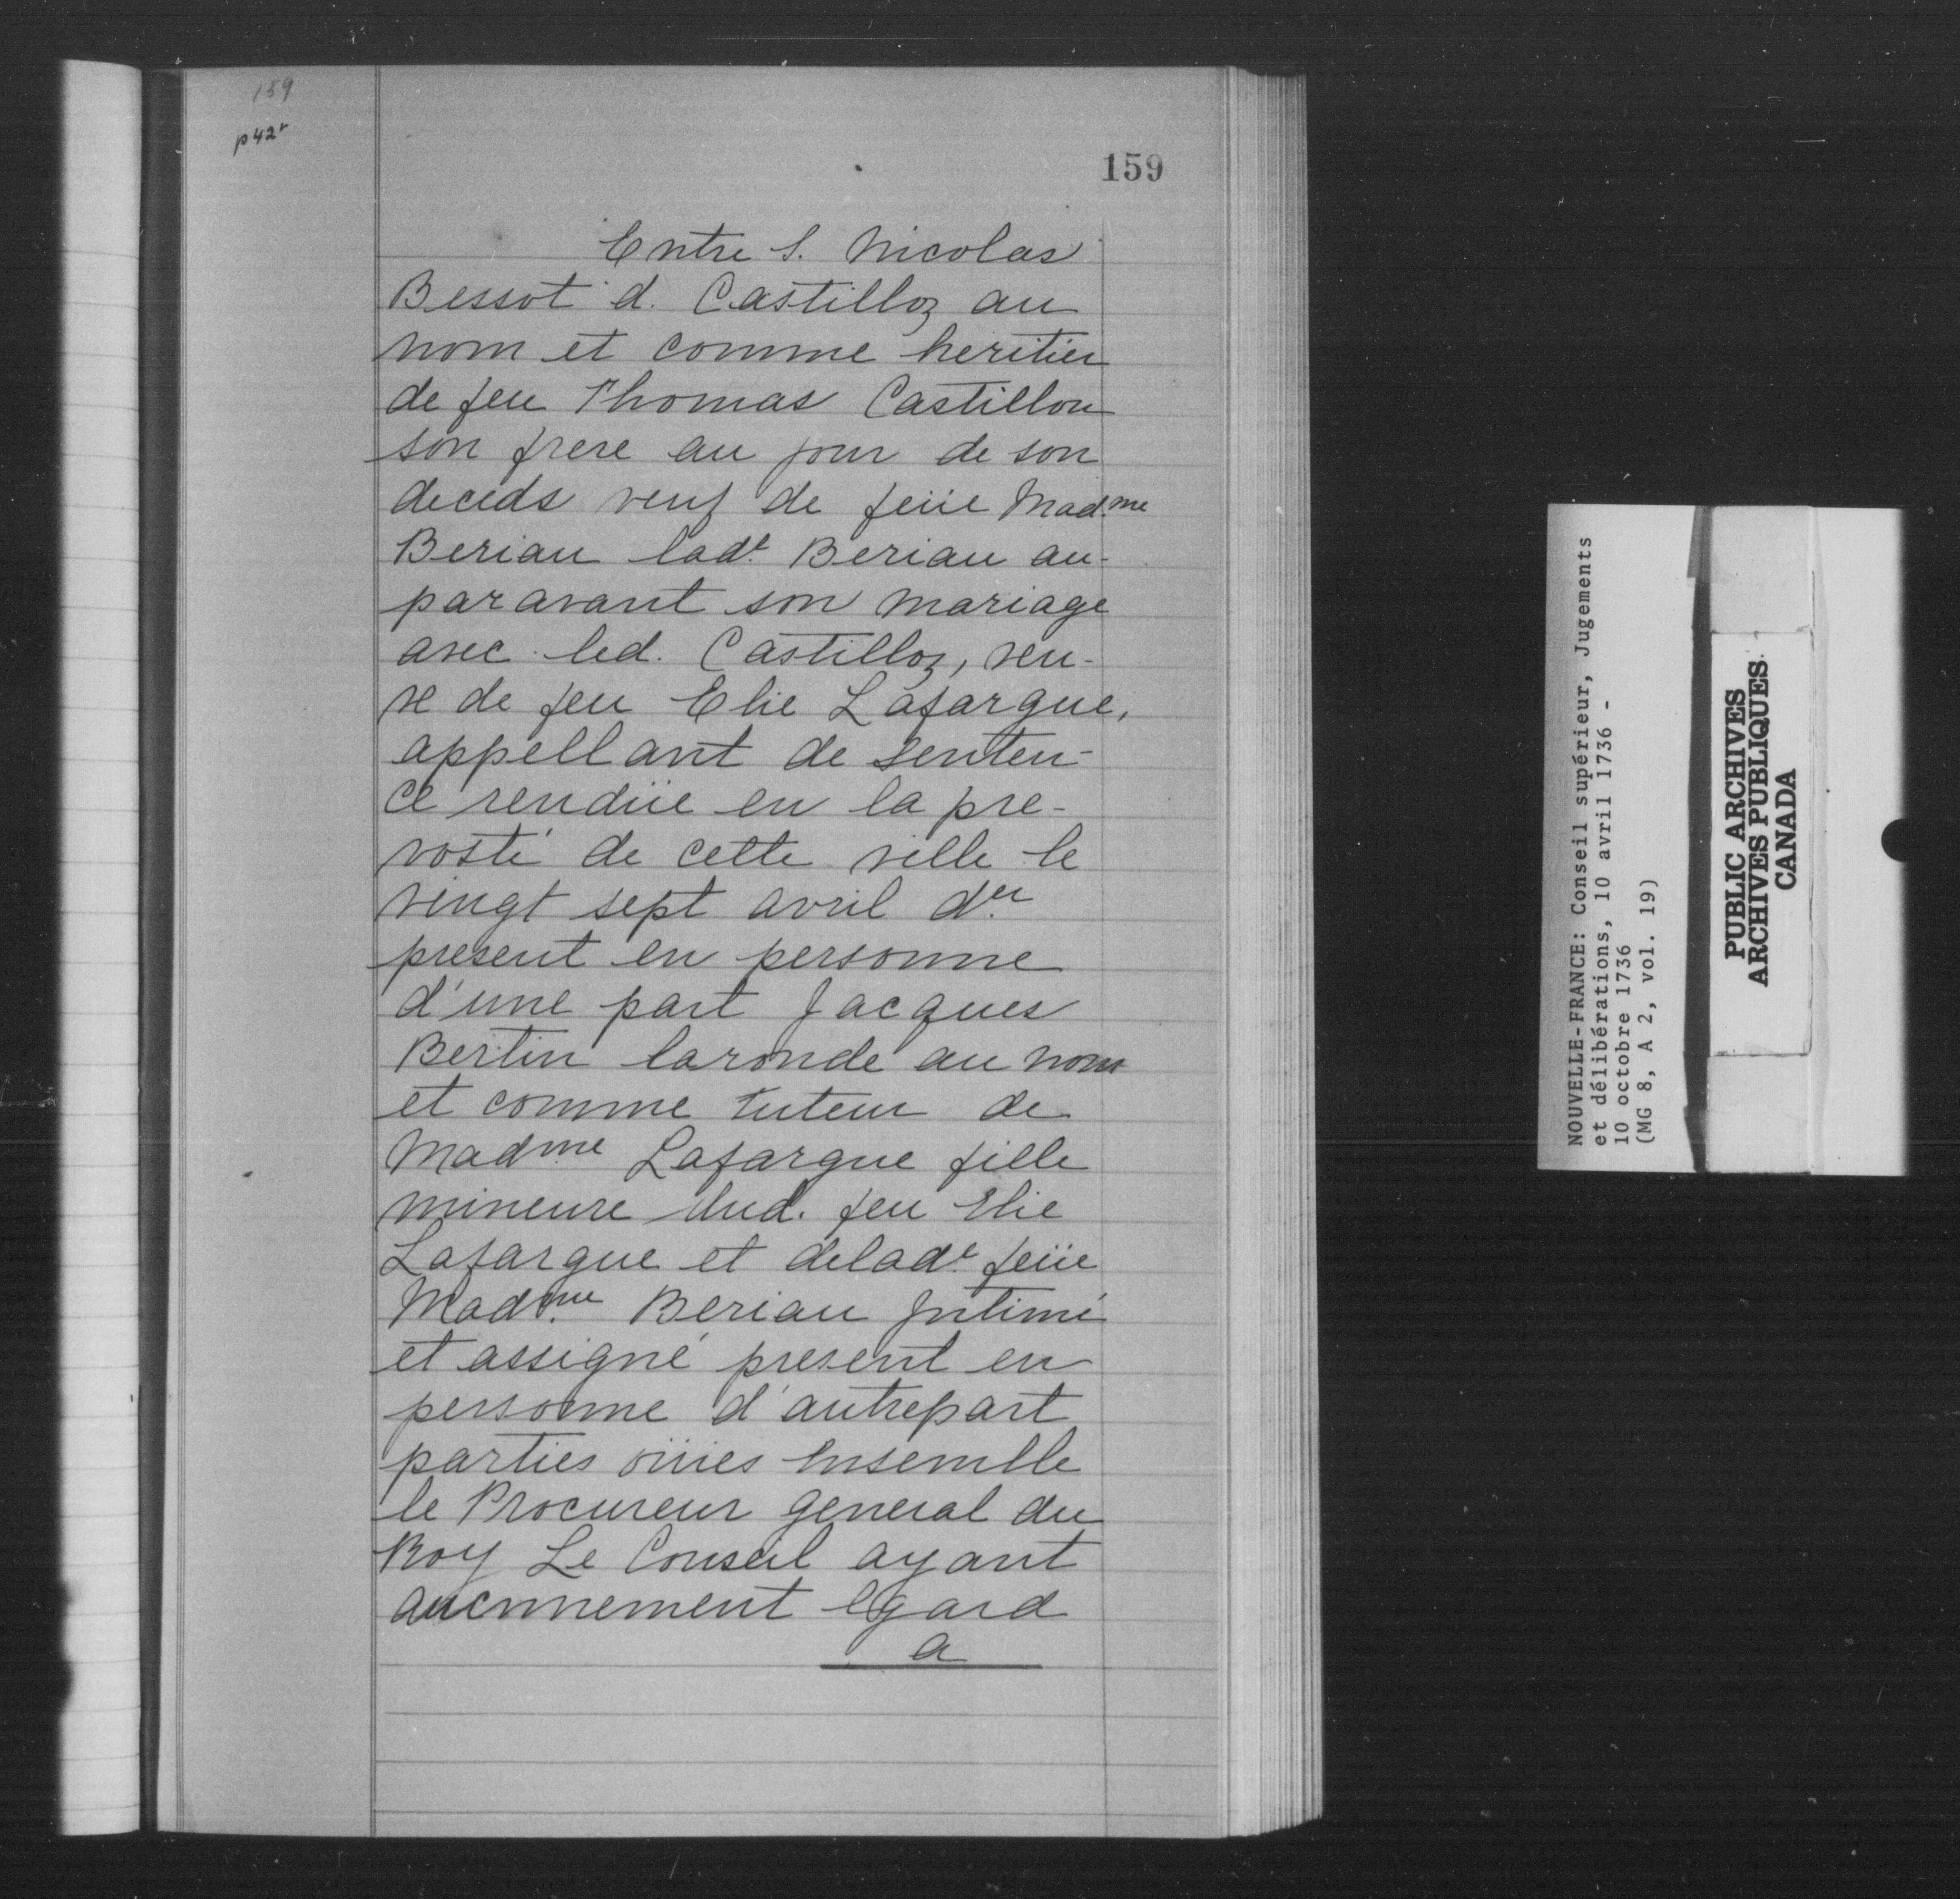 159
p 42r
159
Entre S. Nicolas
Bessot d. Castilloz au
nom et comme heritier
de feu Thomas Castillon
son frere au jour de son
deceds veuf de feüe Mad.me
Beriau lad.e Beriau au-
paravant son mariage
avec led. Castilloz, veu-
ve de feu Elie Lafargue,
appellant de senten-
ce rendüe en la pre-
vosté de cette ville le
vingt sept avril d.er
present en personne
d'une part Jacques
Bertin laronde au nom
et comme tuteur de
Madme Lafargue fille
mineure dud. feu Elie
Lafargue et delad.e feüe
Mad.me Beriau Intimé
et assigné present en
personne d'autrepart
parties oüies Ensemble
le Procureur general du
Roy Le Conseil ayant
aucunnement Egard
a
NOUVELLE-FRANCE: Conseil supérieur, Jugements
et délibérations, 10 avril 1736 -
10 octobre 1736
(MG 8, A 2, vol. 19)
PUBLIC ARCHIVES
ARCHIVES PUBLIQUES
CANADA